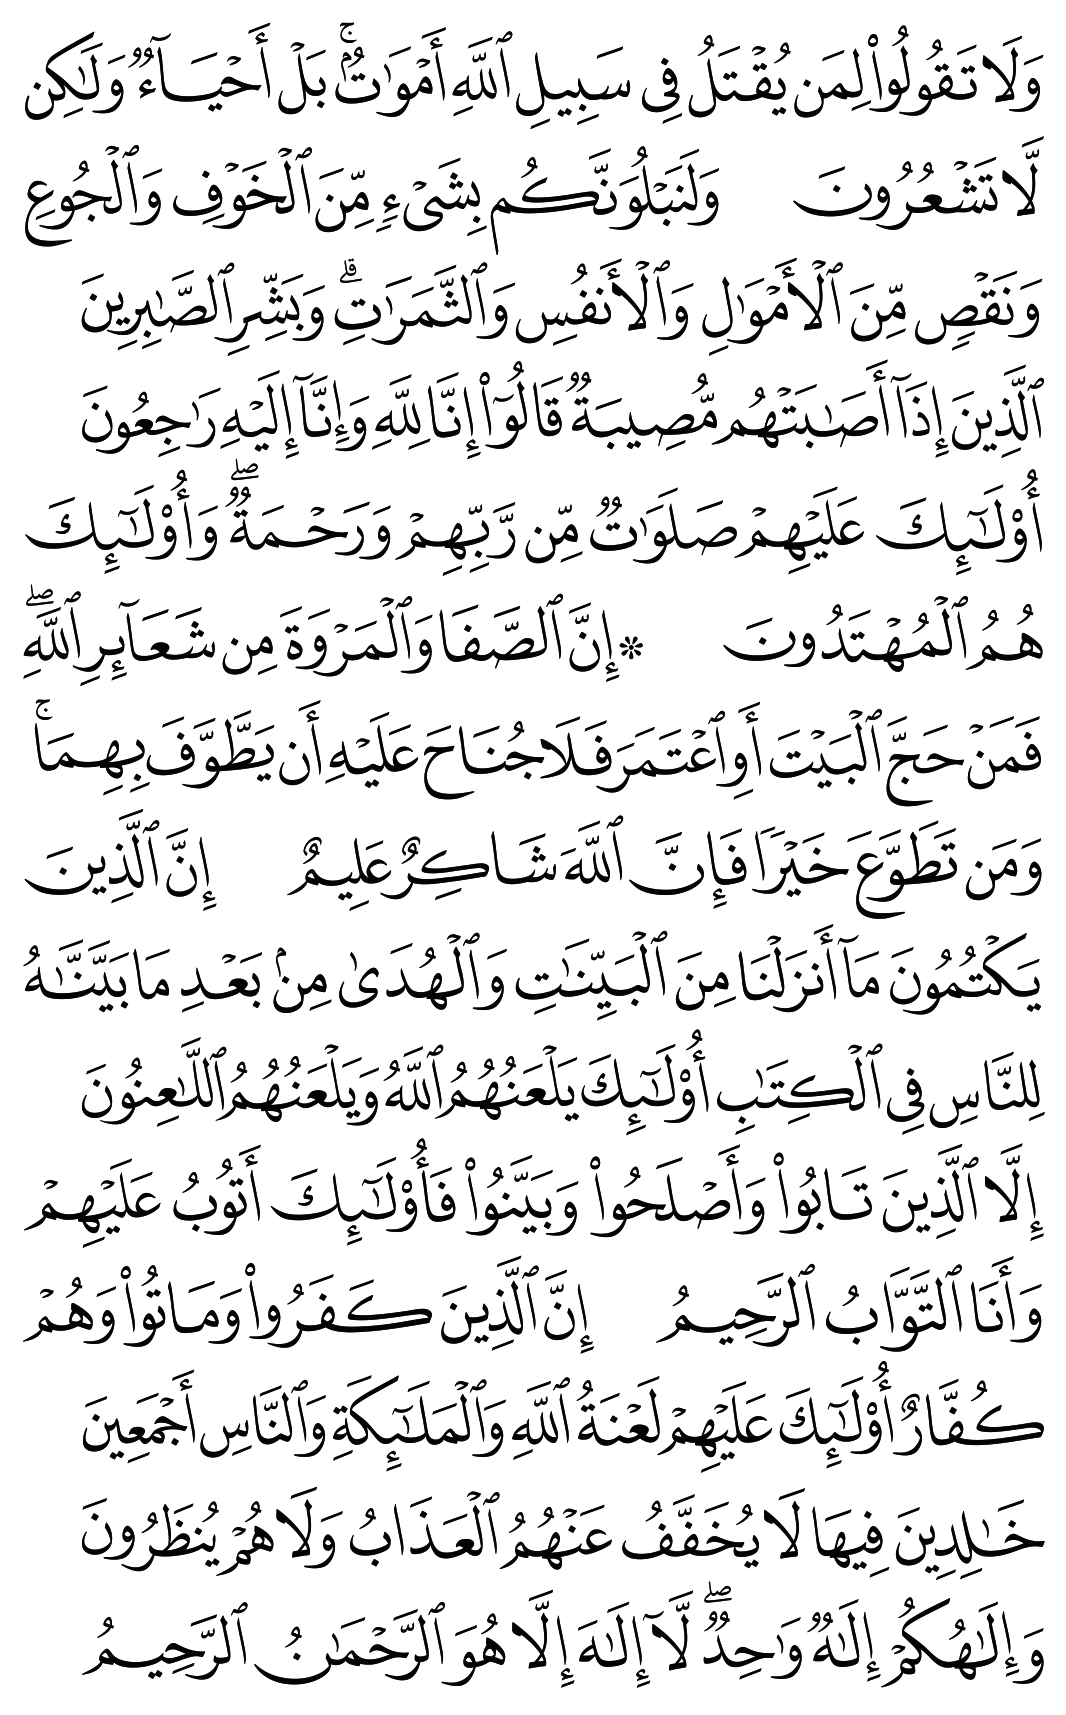 وَلَا تَقُولُوا۟ لِمَن يُقْتَلُ فِى سَبِيلِ ٱللَّهِ أَمْوَٰتٌۢ ۚ بَلْ أَحْيَآءٌ وَلَـٰكِن
لَّا تَشْعُرُونَ وَلَنَبْلُوَنَّكُم بِشَىْءٍ مِّنَ ٱلْخَوْفِ وَٱلْجُوعِ
وَنَقْصٍ مِّنَ ٱلْأَمْوَٰلِ وَٱلْأَنفُسِ وَٱلثَّمَرَٰتِ ۗ وَبَشِّرِ ٱلصَّـٰبِرِينَ
ٱلَّذِينَ إِذَآ أَصَـٰبَتْهُم مُّصِيبَةٌ قَالُوٓا۟ إِنَّا لِلَّهِ وَإِنَّآ إِلَيْهِ رَٰجِعُونَ
أُو۟لَـٰٓئِكَ عَلَيْهِمْ صَلَوَٰتٌ مِّن رَّبِّهِمْ وَرَحْمَةٌ ۖ وَأُو۟لَـٰٓئِكَ
هُمُ ٱلْمُهْتَدُونَ ۞ إِنَّ ٱلصَّفَا وَٱلْمَرْوَةَ مِن شَعَآئِرِ ٱللَّهِ ۖ
فَمَنْ حَجَّ ٱلْبَيْتَ أَوِ ٱعْتَمَرَ فَلَا جُنَاحَ عَلَيْهِ أَن يَطَّوَّفَ بِهِمَا ۚ
وَمَن تَطَوَّعَ خَيْرًا فَإِنَّ ٱللَّهَ شَاكِرٌ عَلِيمٌ إِنَّ ٱلَّذِينَ
يَكْتُمُونَ مَآ أَنزَلْنَا مِنَ ٱلْبَيِّنَـٰتِ وَٱلْهُدَىٰ مِنۢ بَعْدِ مَا بَيَّنَّـٰهُ
لِلنَّاسِ فِى ٱلْكِتَـٰبِ أُو۟لَـٰٓئِكَ يَلْعَنُهُمُ ٱللَّهُ وَيَلْعَنُهُمُ ٱللَّـٰعِنُونَ
إِلَّا ٱلَّذِينَ تَابُوا۟ وَأَصْلَحُوا۟ وَبَيَّنُوا۟ فَأُو۟لَـٰٓئِكَ أَتُوبُ عَلَيْهِمْ
وَأَنَا ٱلتَّوَّابُ ٱلرَّحِيمُ إِنَّ ٱلَّذِينَ كَفَرُوا۟ وَمَاتُوا۟ وَهُمْ
كُفَّارٌ أُو۟لَـٰٓئِكَ عَلَيْهِمْ لَعْنَةُ ٱللَّهِ وَٱلْمَلَـٰٓئِكَةِ وَٱلنَّاسِ أَجْمَعِينَ
خَـٰلِدِينَ فِيهَا لَا يُخَفَّفُ عَنْهُمُ ٱلْعَذَابُ وَلَا هُمْ يُنظَرُونَ
وَإِلَـٰهُكُمْ إِلَـٰهٌ وَٰحِدٌ ۖ لَّآ إِلَـٰهَ إِلَّا هُوَ ٱلرَّحْمَـٰنُ ٱلرَّحِيمُ